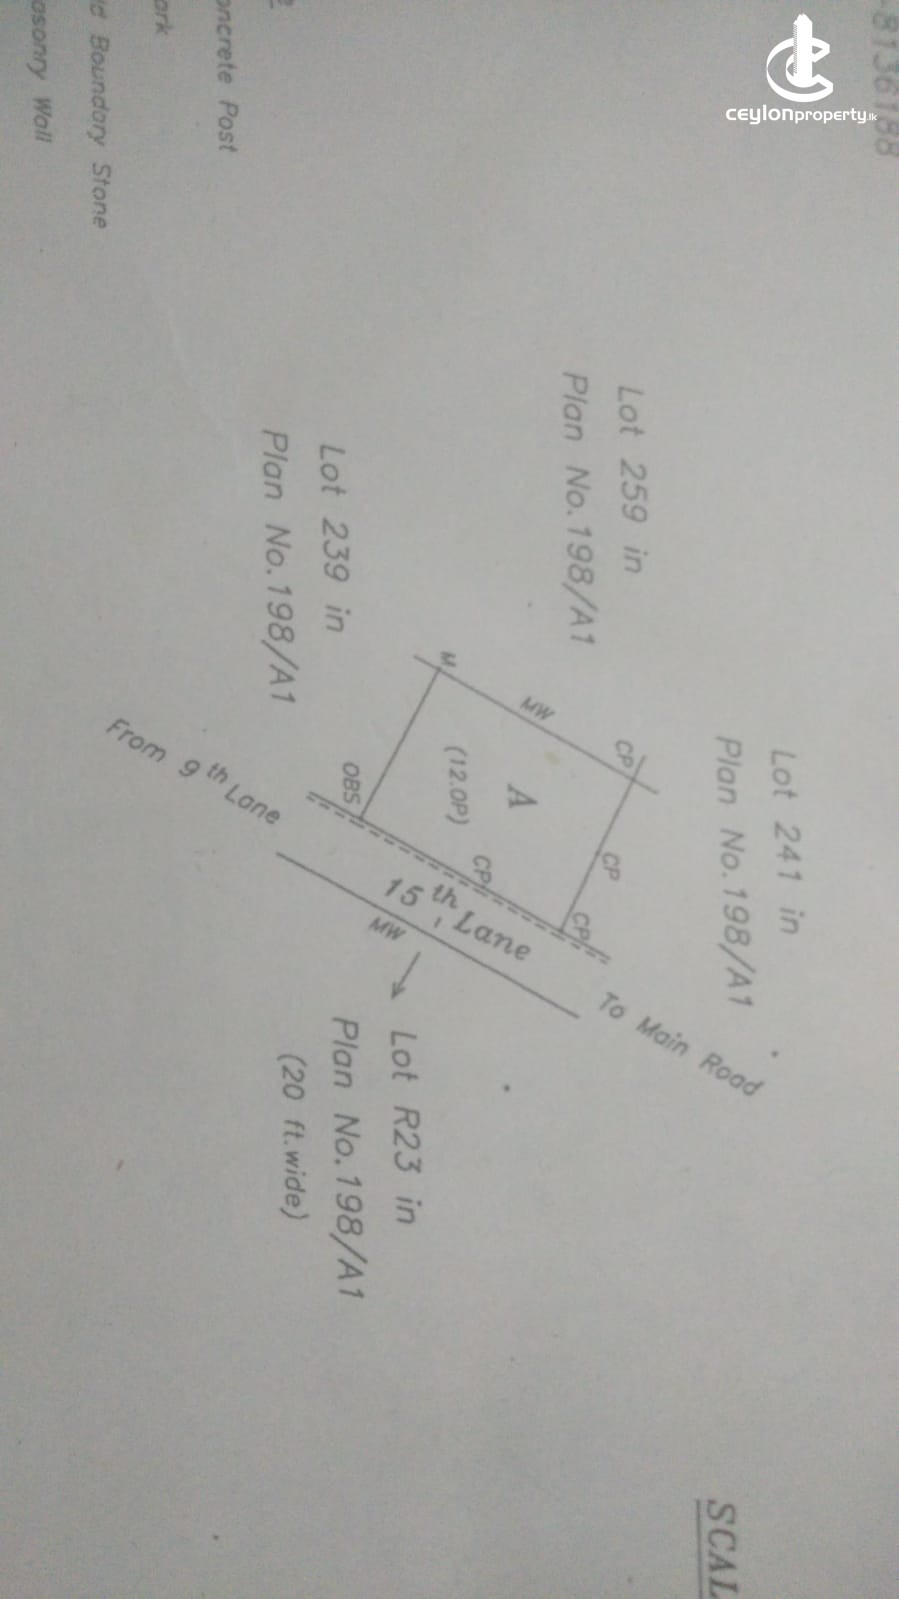 -8136188
ceylonproperty.lk
Lot 241 in
Plan No.198/A1
Lot 259 in
Plan No.198/A1
CP
CP
CP
MW
A
(12.0P)
CP
M
OBS
Lot 239 in
Plan No.198/A1
15th Lane
MW
To Main Road
From 9th Lane
Lot R23 in
Plan No.198/A1
(20 ft.wide)
oncrete Post
ark
ld Boundary Stone
asonry Wall
SCAL